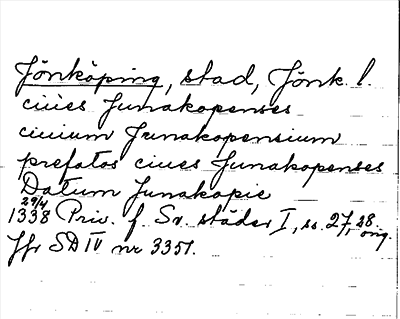 Jönköping, stad, Jönk. l.
ciues Junakopenses
ciuium Junakopensium
prefatos ciues Junakopenses
Datum Junakopie
29/4
1338 Priv. f. Sv. städer I, ss. 27, 28.
orig.
Jfr SD IV nr 3351.